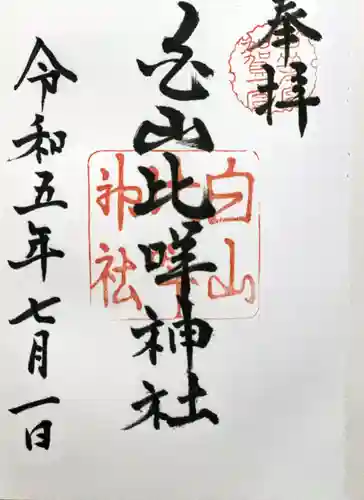 奉拝
白山比咩神社
令和五年七月一日
白山
比咩
神社